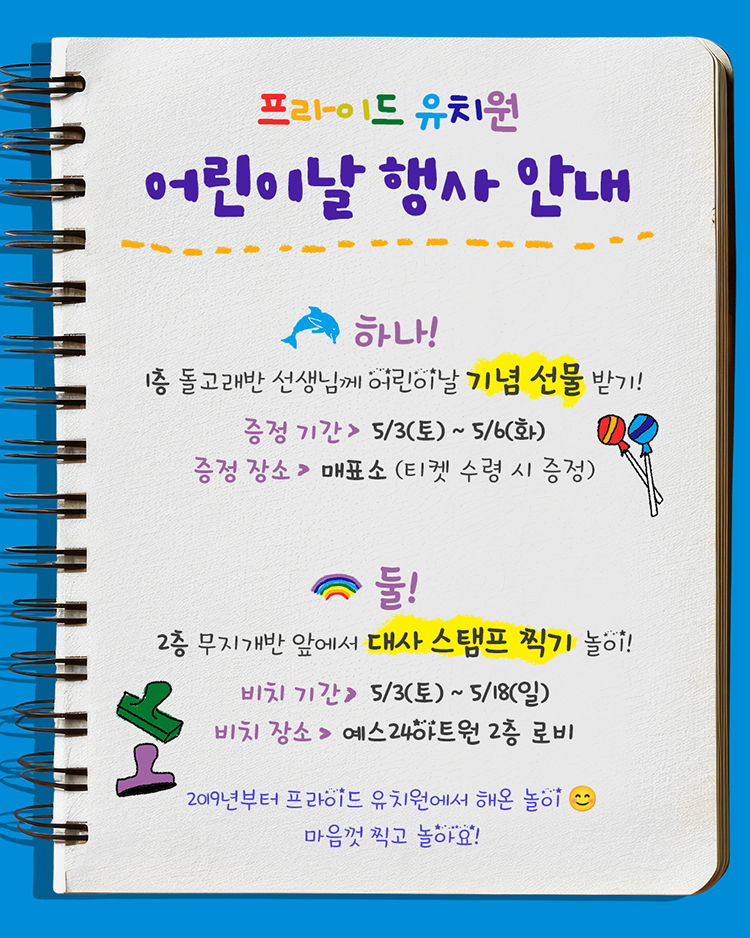 프라이드 유치원
어린이날 행사 안내
하나!
1층 돌고래반 선생님께 어린이날 기념 선물 받기!
증정 기간 > 5/3(토) ~ 5/6(화)
증정 장소 > 매표소 (티켓 수령 시 증정)
둘!
2층 무지개반 앞에서 대사 스탬프 찍기 놀이!
비치 기간 > 5/3(토) ~ 5/18(일)
비치 장소 > 예스24아트원 2층 로비
2019년부터 프라이드 유치원에서 해온 놀이 😊
마음껏 찍고 놀아요!